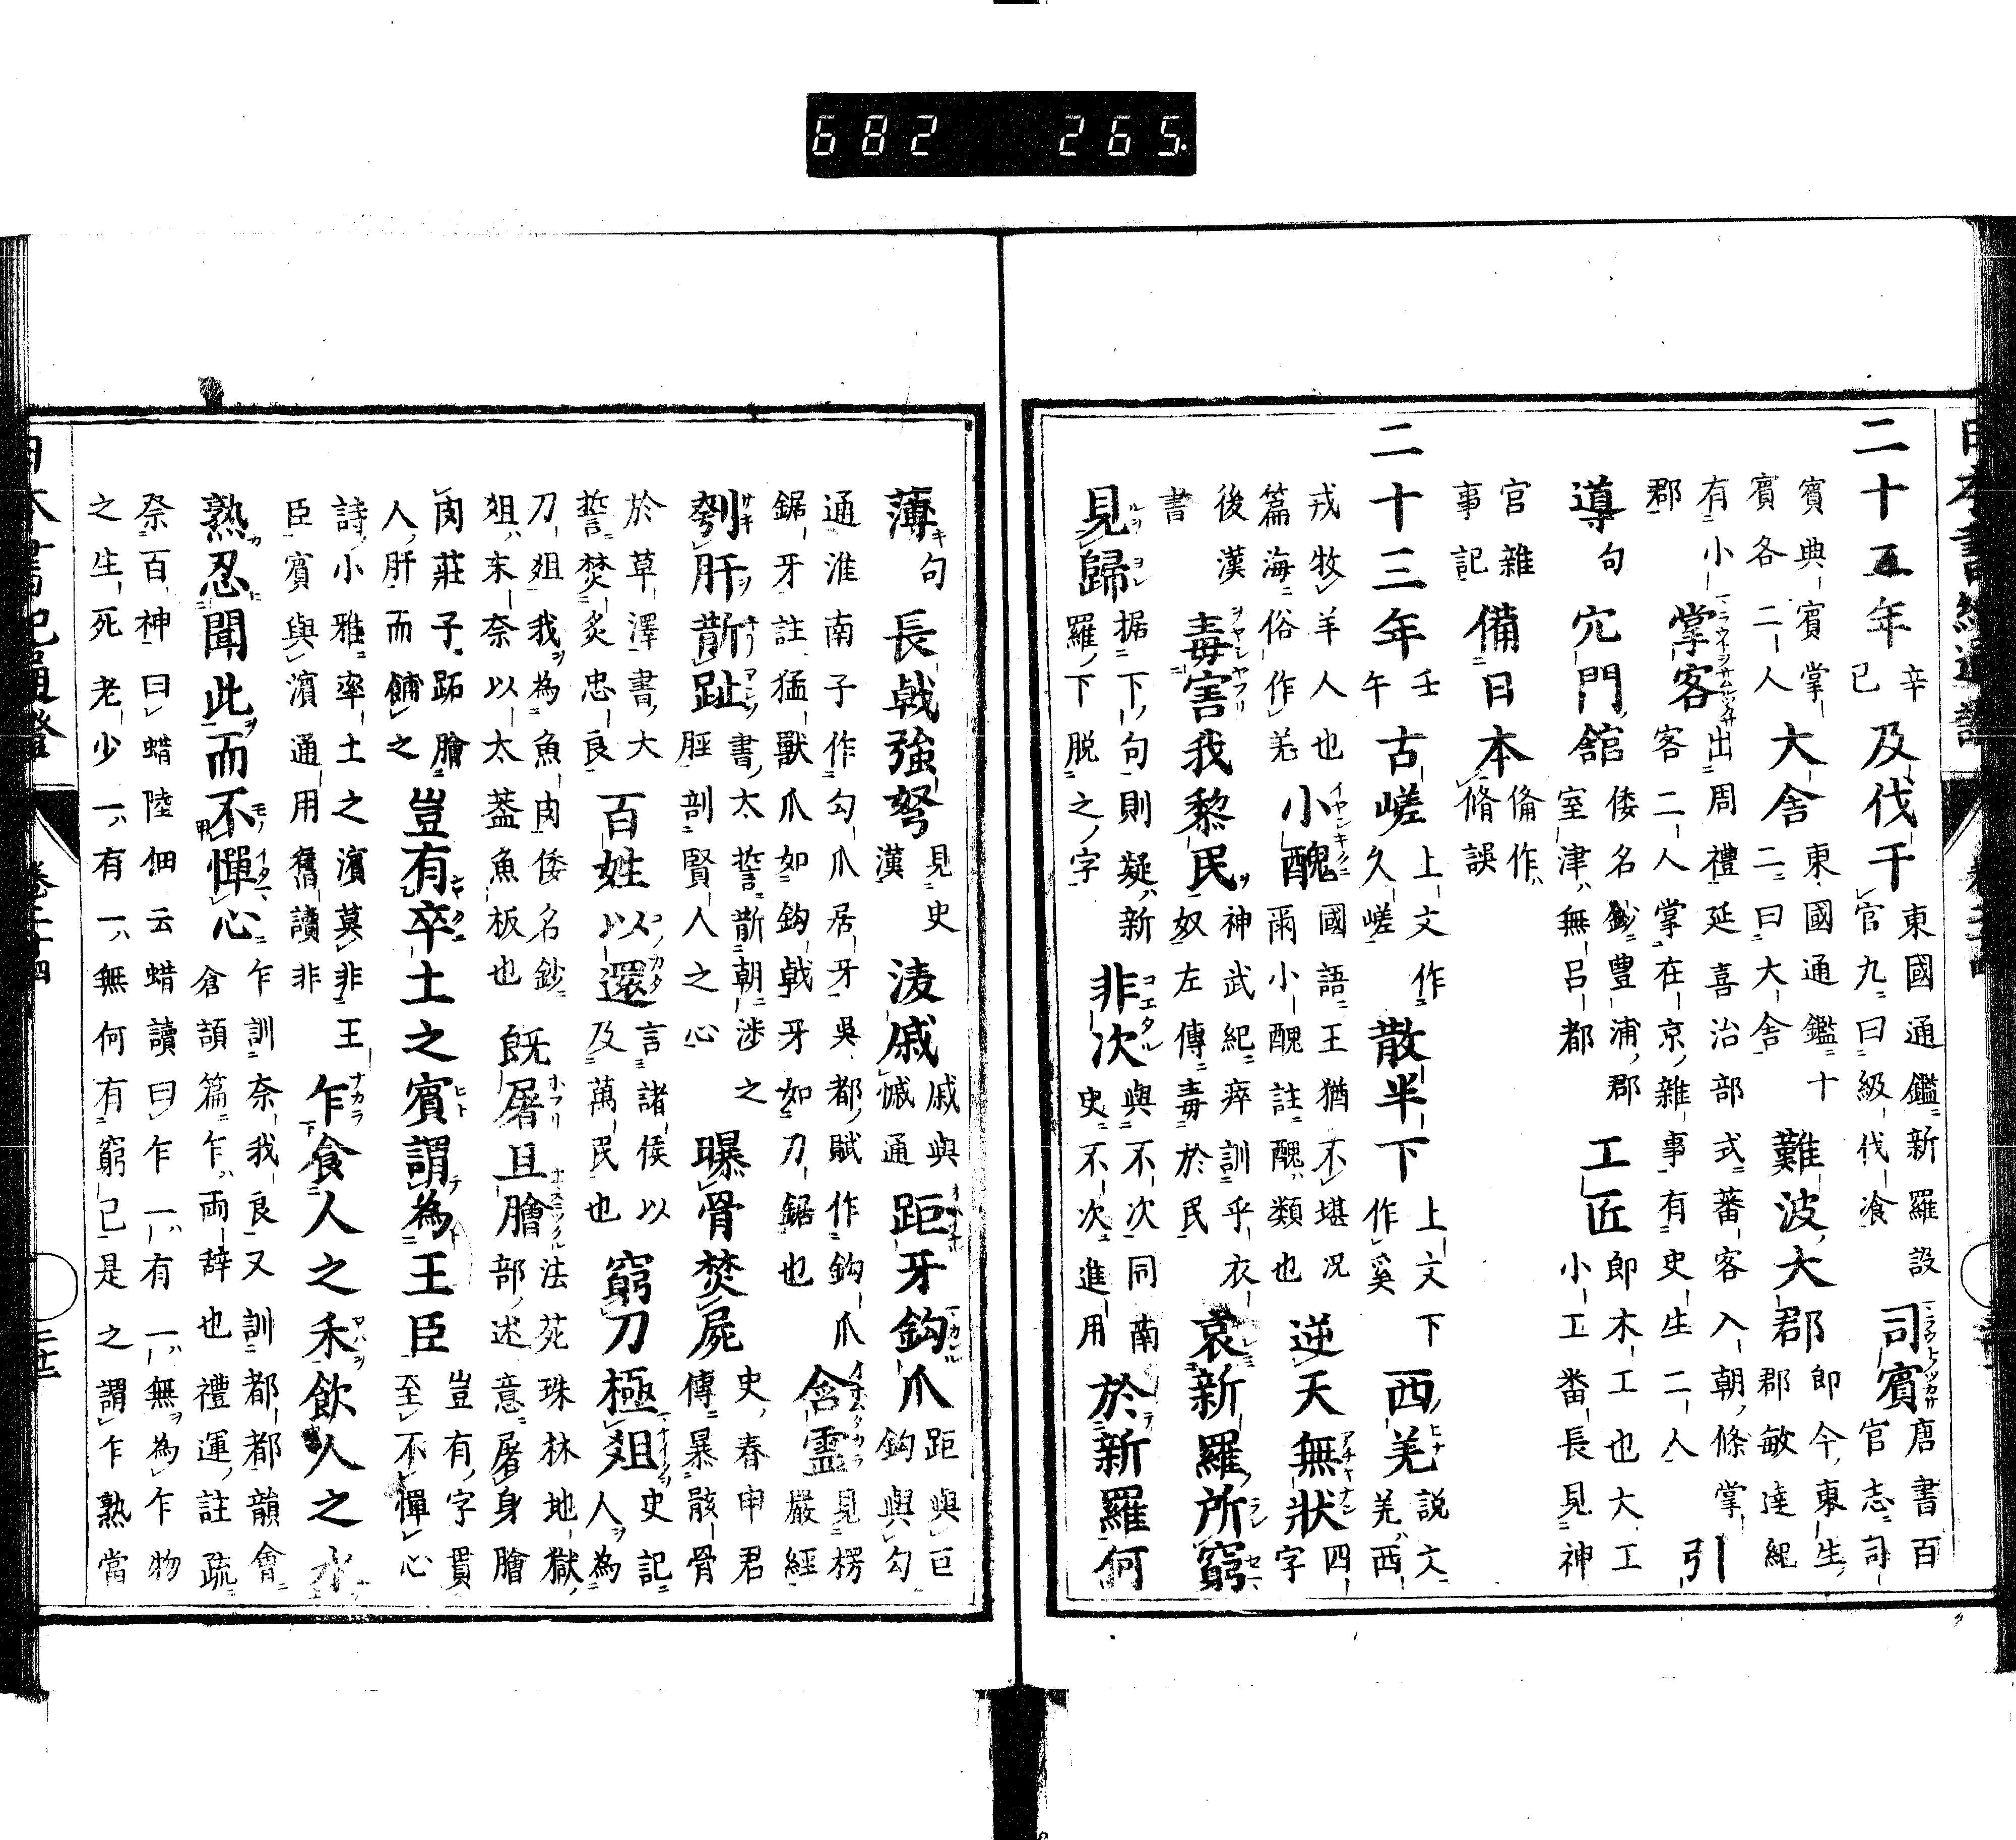 二十五年辛巳及伐干東國通鑑新羅設官九曰級伐飡司賓唐書百官志司
賓典賓掌賓各二人大舍東國通鑑十二曰大舍難波大郡即今東生郡敏達紀
有小郡掌客出周禮延喜治部式蕃客入朝條掌客二人掌在京雜事有史生二人引
導句宂門舘倭名鈔豊浦郡室津無呂都工匠即木工也大工小工番長見神
宮雜事記備日本俻作脩誤
二十三年壬午古嵯上文作久嵯散半下上文下作奚西羌説文羌西
戎牧羊人也篇海俗作羌小醜國語王猶不堪况爾小醜註醜類也逆天無狀四字
後漢書毒害我黎民神武紀瘁訓乎衣奴左傳毒於民哀新羅所窮
見歸据下句則疑新羅下脱之字非次與不次同南史不次進用於新羅何
薄句長戟強弩見史漢淩戚戚與慽通距牙鈎爪距與巨鈎與勾
通淮南子作勾爪居牙吳都賦作鈎爪鋸牙註猛獸爪如鈎戟牙如刀鋸也含霊見楞嚴經
刳肝斮趾書太誓斮朝渉之脛剖賢人之心曝骨焚屍史春申君傳暴骸骨
於草澤書大誓焚炙忠良百姓以還言諸侯以及萬民也窮刀極俎史記人為
刀俎我為魚肉倭名鈔俎末奈以太蓋魚板也既屠且膾法苑珠林地獄部述意屠身膾
肉莊子跖膾人肝而餔之豈有卒土之賓謂為王臣豈有字貫至不憚心
詩小雅率土之濱莫非王臣賓與濱通用舊讀非乍食人之禾飲人之水
熟忍聞此而不憚心乍訓奈我良又訓都都韻會倉頡篇乍兩辞也禮運註疏
祭百神曰蜡陸佃云蜡讀曰乍一有一無為乍物之生死老少一有一無何有窮已是之謂乍熟當
682 265